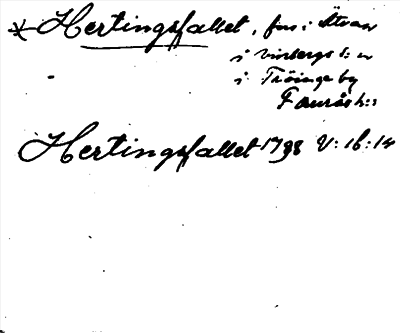 * Hertingsfallet, fors i Ätran
i Vinbergs s:n
i Tröinge by
Faurås h:d
Hertingsfallet 1798 V:16:14